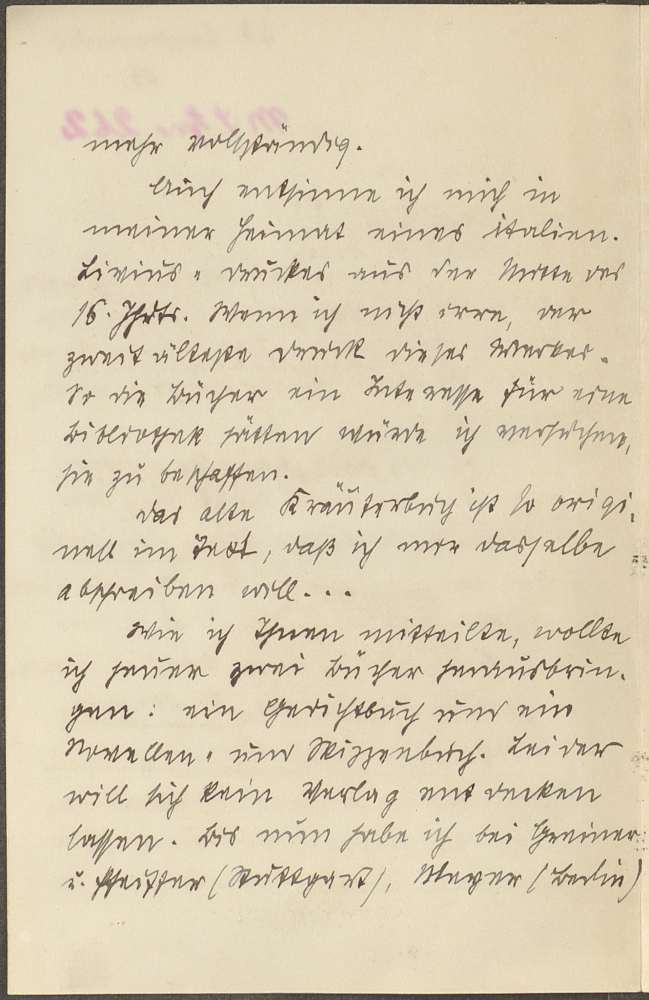 mehr vollständig.
Auch entsinne ich mich in
meiner Heimat eines italien.
Livius-Druckes aus der Mitte des
16. Jhrts. Wenn ich nicht irre, der
zweit älteste Druck dieses Werkes.
So die Bücher ein Interesse für eine
Bibliothek hätten würde ich versuchen,
sie zu beschaffen.
Das alte Kräuterbuch ist so origi-
nell im Text, daß ich mir dasselbe
abschreiben will...
Wie ich Ihnen mitteilte, wollte
ich heuer zwei Bücher herausbrin-
gen: ein Gedichtbuch und ein
Novellen- und Skizzenbuch. Leider
will sich kein Verlag entdecken
lassen. Bis nun habe ich bei Greiner
u. Pfeiffer (Stuttgart), Meyer (Berlin)